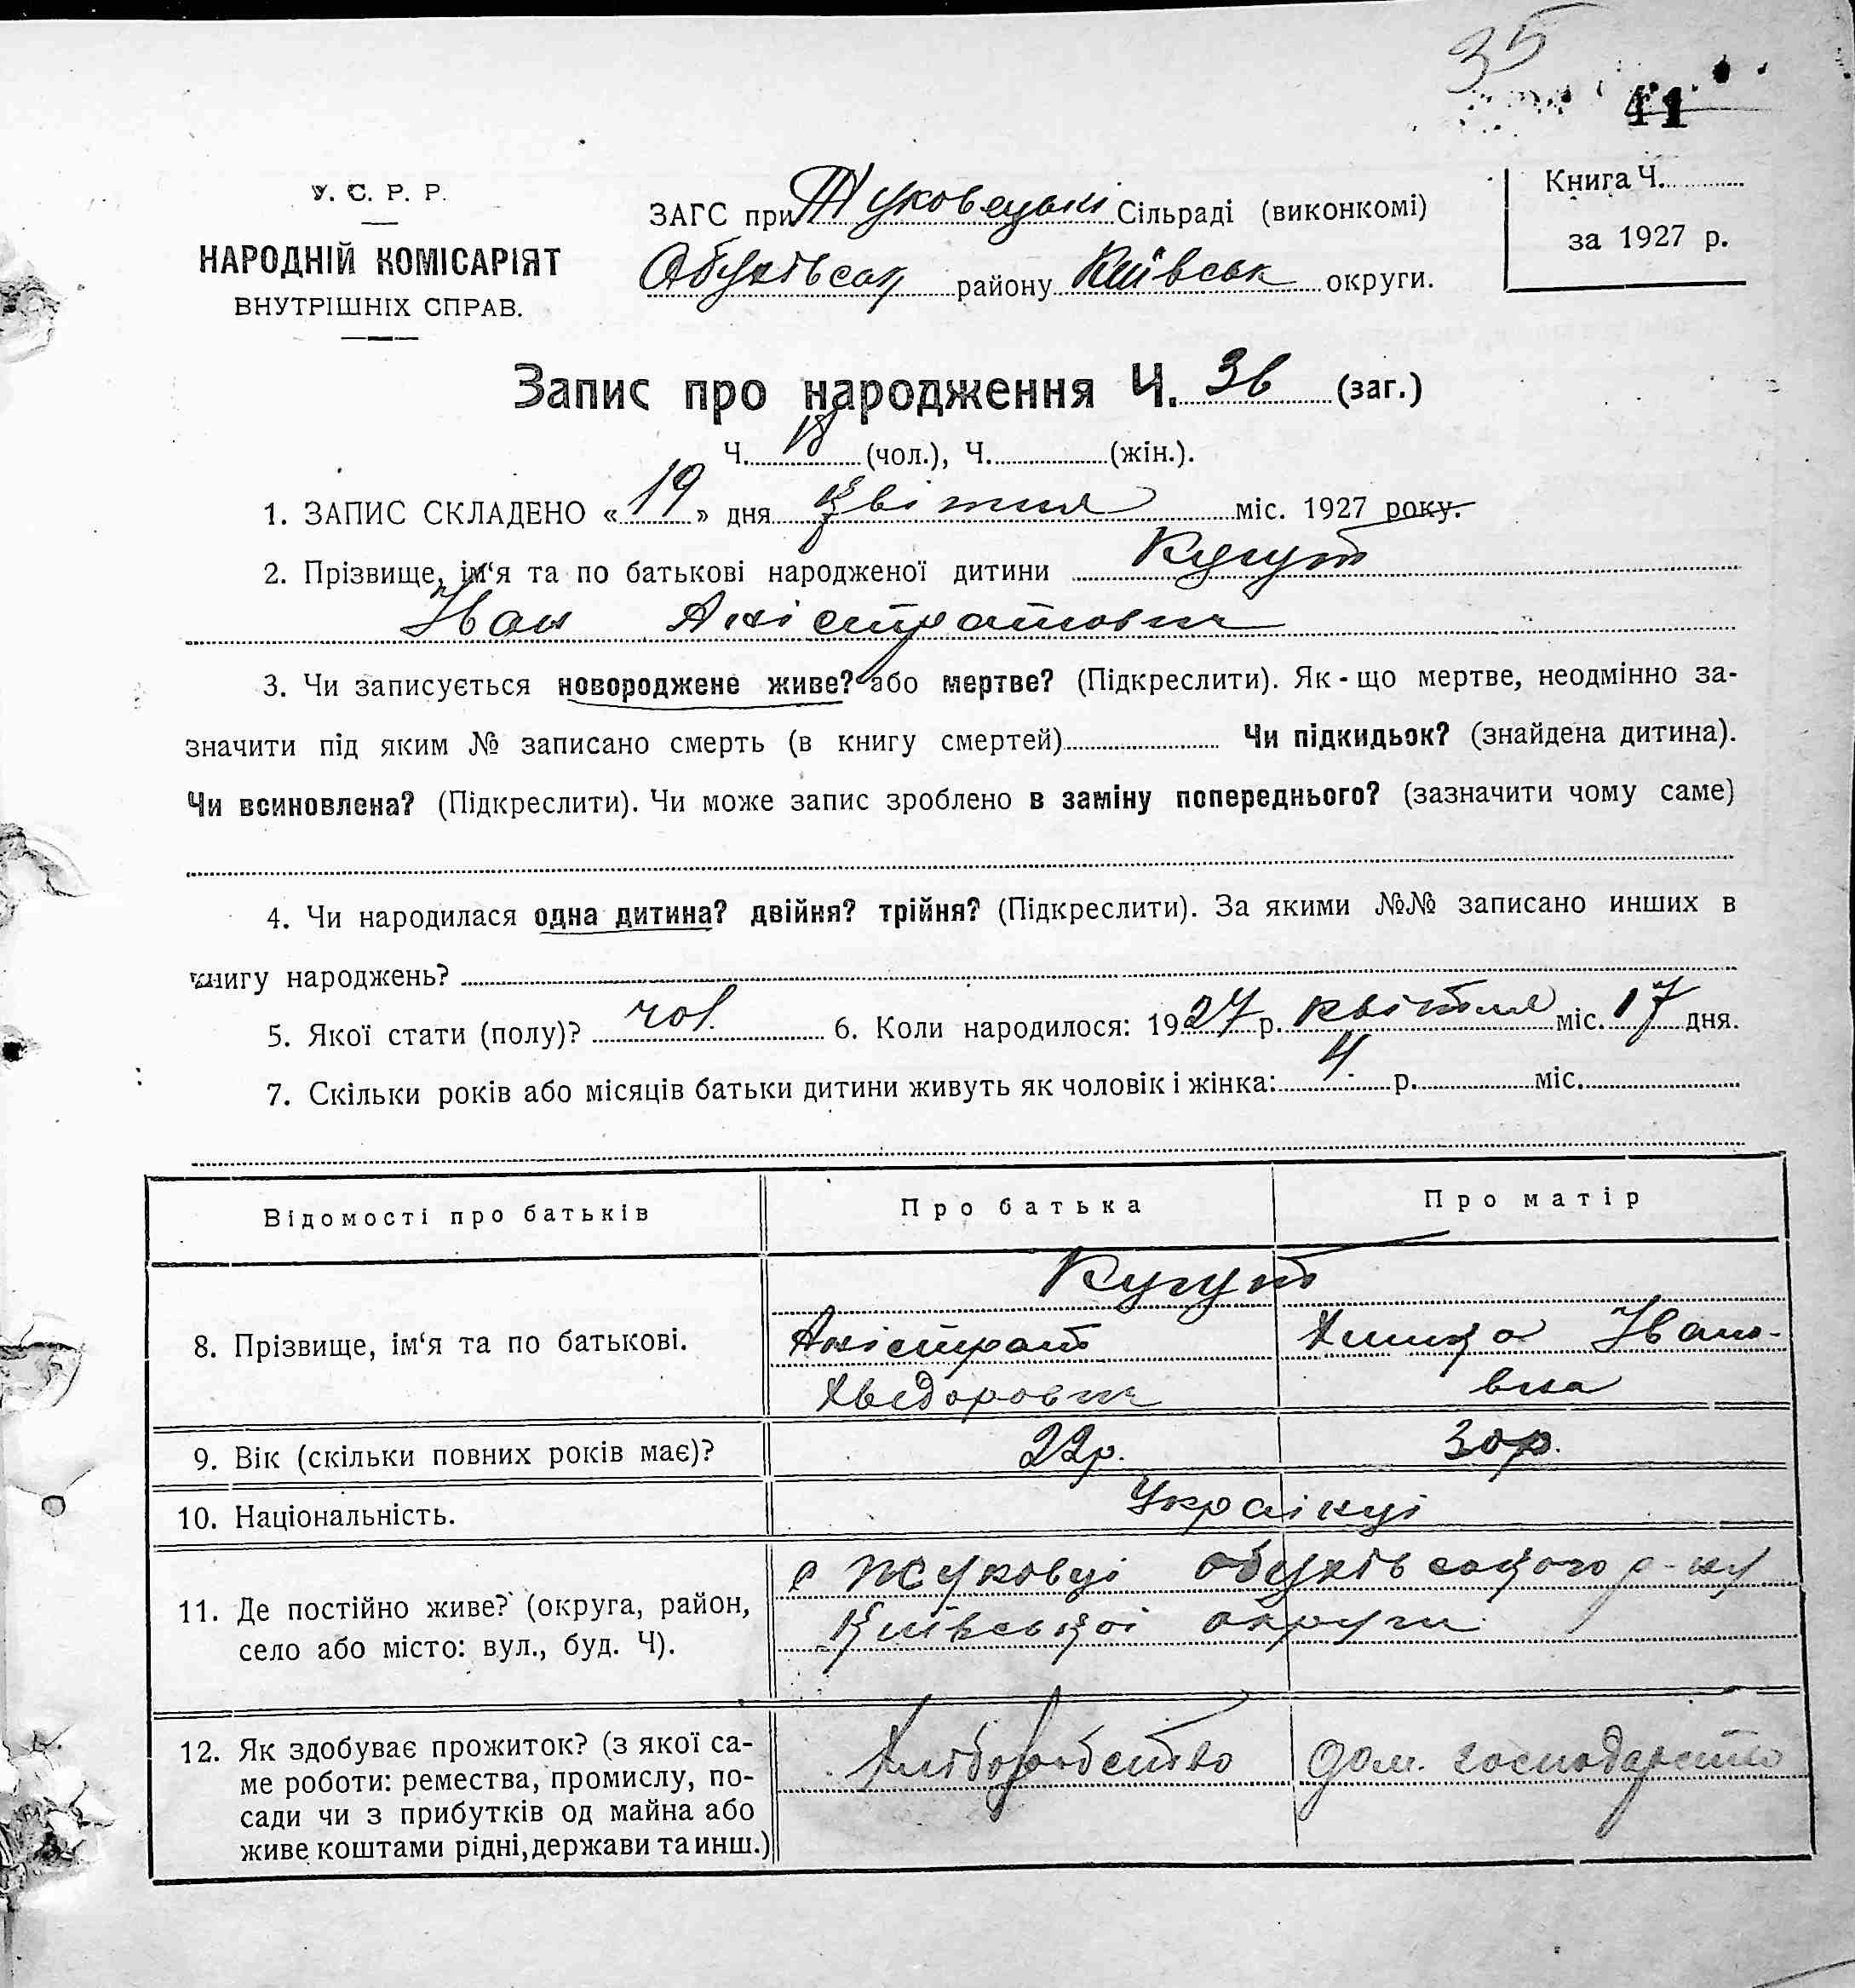 35
41
У. С. Р. Р.
НАРОДНІЙ КОМІСАРІЯТ
ВНУТРІШНІХ СПРАВ.
ЗАГС при Жуковецькі Сільраді (виконкомі)
Обухівськ району Київськ округи.
Книга Ч.
за 1927 р.
Запис про народження Ч. 36 (заг.)
Ч. 18 (чол.), Ч. (жін.).
1. ЗАПИС СКЛАДЕНО « 19 » дня квітня міс. 1927 року.
2. Прізвище, ім'я та по батькові народженої дитини Кугут
Іван Аністратович
3. Чи записується новороджене живе? або мертве? (Підкреслити). Як-що мертве, неодмінно за-
значити під яким № записано смерть (в книгу смертей) Чи підкидьок? (знайдена дитина).
Чи всиновлена? (Підкреслити). Чи може запис зроблено в заміну попереднього? (зазначити чому саме)
4. Чи народилася одна дитина? двійня? трійня? (Підкреслити). За якими №№ записано инших в
книгу народжень?
5. Якої стати (полу)? чол. 6. Коли народилося: 1927 р. квітня міс. 17 дня.
7. Скільки років або місяців батьки дитини живуть як чоловік і жінка: 4 р. міс.
Відомості про батьків Про батька Про матір
Кугут
8. Прізвище, ім'я та по батькові. Аністрат Химка Івано-
Хведорович вна
9. Вік (скільки повних років має)? 22р. 30р.
10. Національність. Українці
с Жуковці обухівського р-ну
11. Де постійно живе? (округа, район, Київської округи
село або місто: вул., буд. Ч).
12. Як здобуває прожиток? (з якої са- Хліборобство дом. господарство
ме роботи: ремества, промислу, по-
сади чи з прибутків од майна або
живе коштами рідні, держави та инш.)